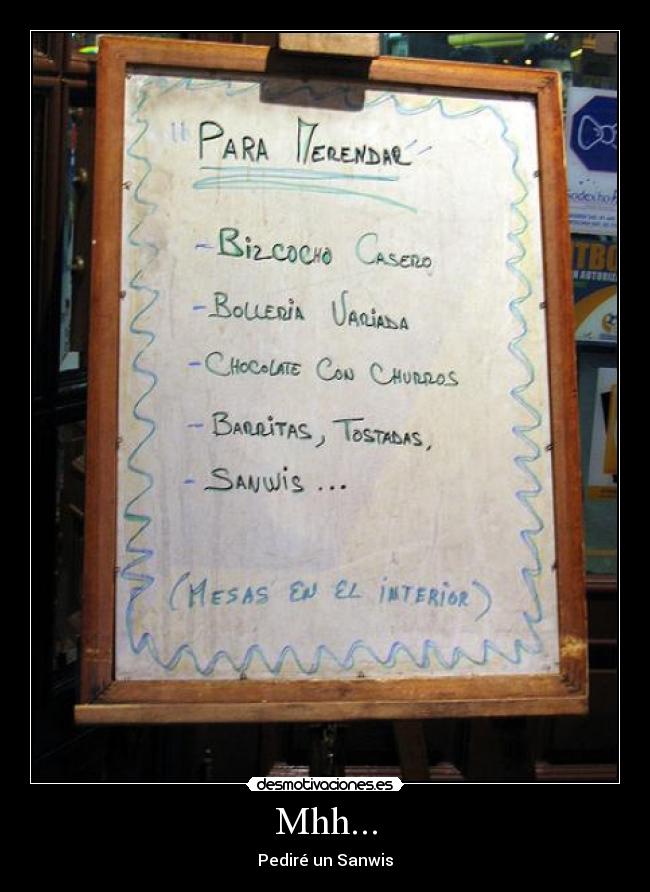 "PARA MERENDAR"
- BIZCOCHO CASERO
- BOLLERIA VARIADA
- CHOCOLATE CON CHURROS
- BARRITAS, TOSTADAS,
- SANWIS ...
(MESAS EN EL INTERIOR)
desmotivaciones.es
Mhh...
Pediré un Sanwis